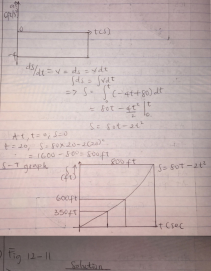 t(s)
ds/dt = v = ds = vdt
∫ds = ∫vdt
⇒ S = ∫ (-4t+80) dt
= 80t - 4t²/2 |
S = 80t - 2t²
At, t=0, S=0
t = 20, S = 80×20 - 2(20)²
= 1600 - 800 = 800ft
S-T graph
800ft
(ft)
S=80t-2t²
600ft
350ft
t(sec
Fig 12-11
Solution